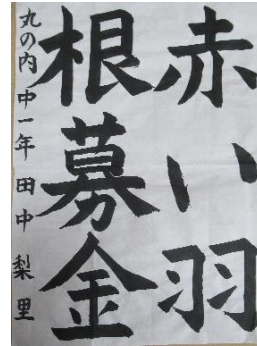 赤い羽
根募金
丸の内中一年 田中梨里